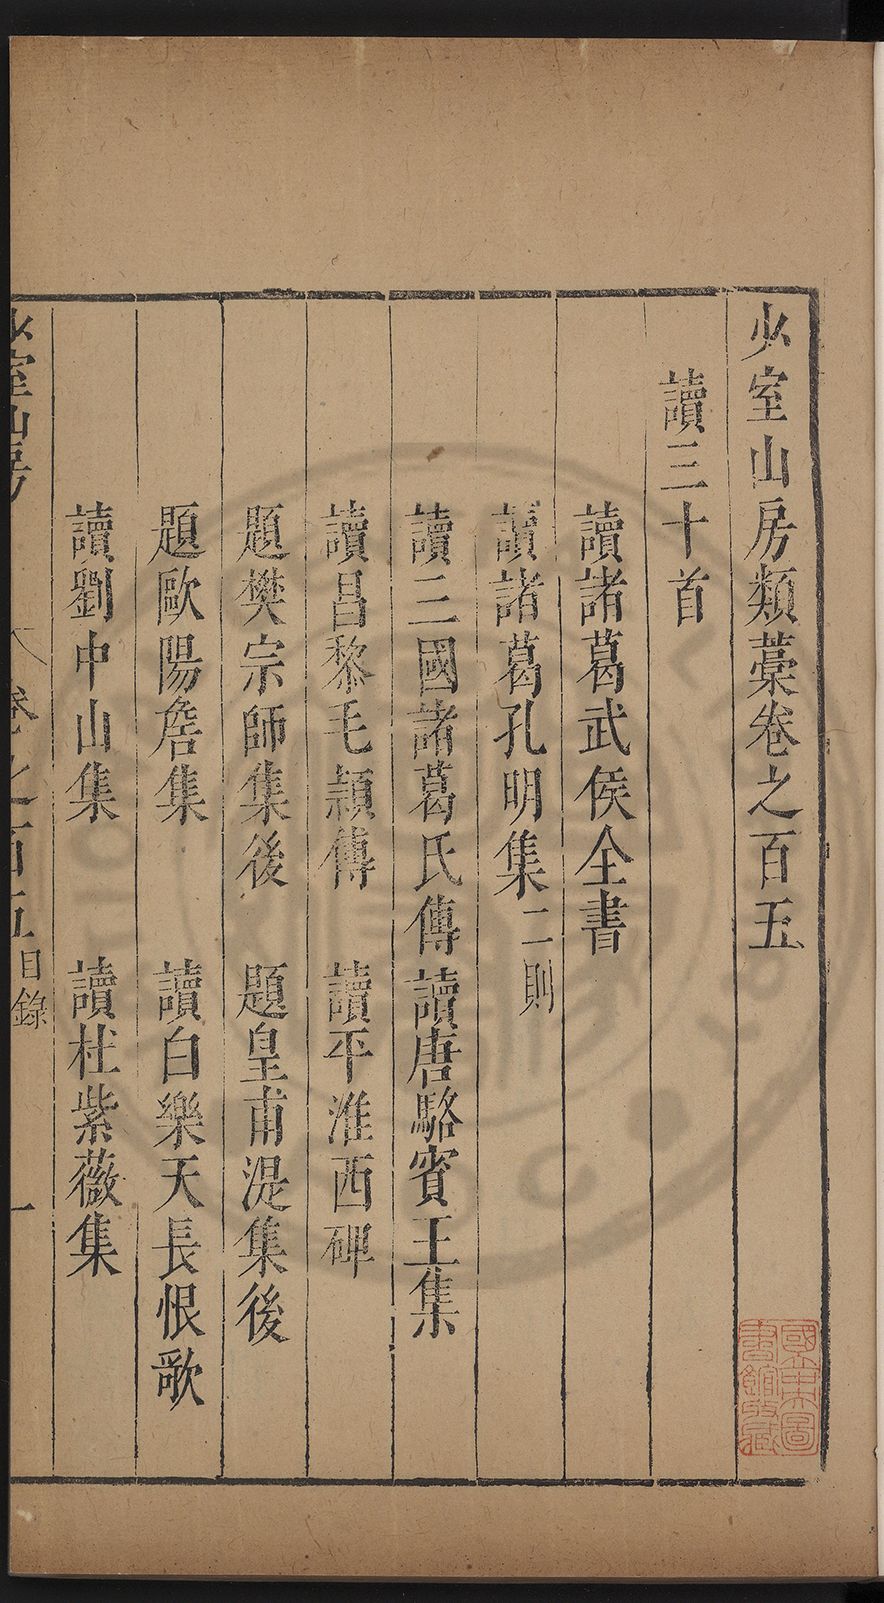 少室山房類藁卷之百五
讀三十首
讀諸葛武侯全書
讀諸葛孔明集二則
讀三國諸葛氏傳 讀唐駱賓王集
讀昌黎毛穎傳 讀平淮西碑
題樊宗師集後 題皇甫湜集後
題歐陽詹集 讀白樂天長恨歌
讀劉中山集 讀杜紫薇集
少室山房 卷之百五目錄 一
國立中央圖書館收藏